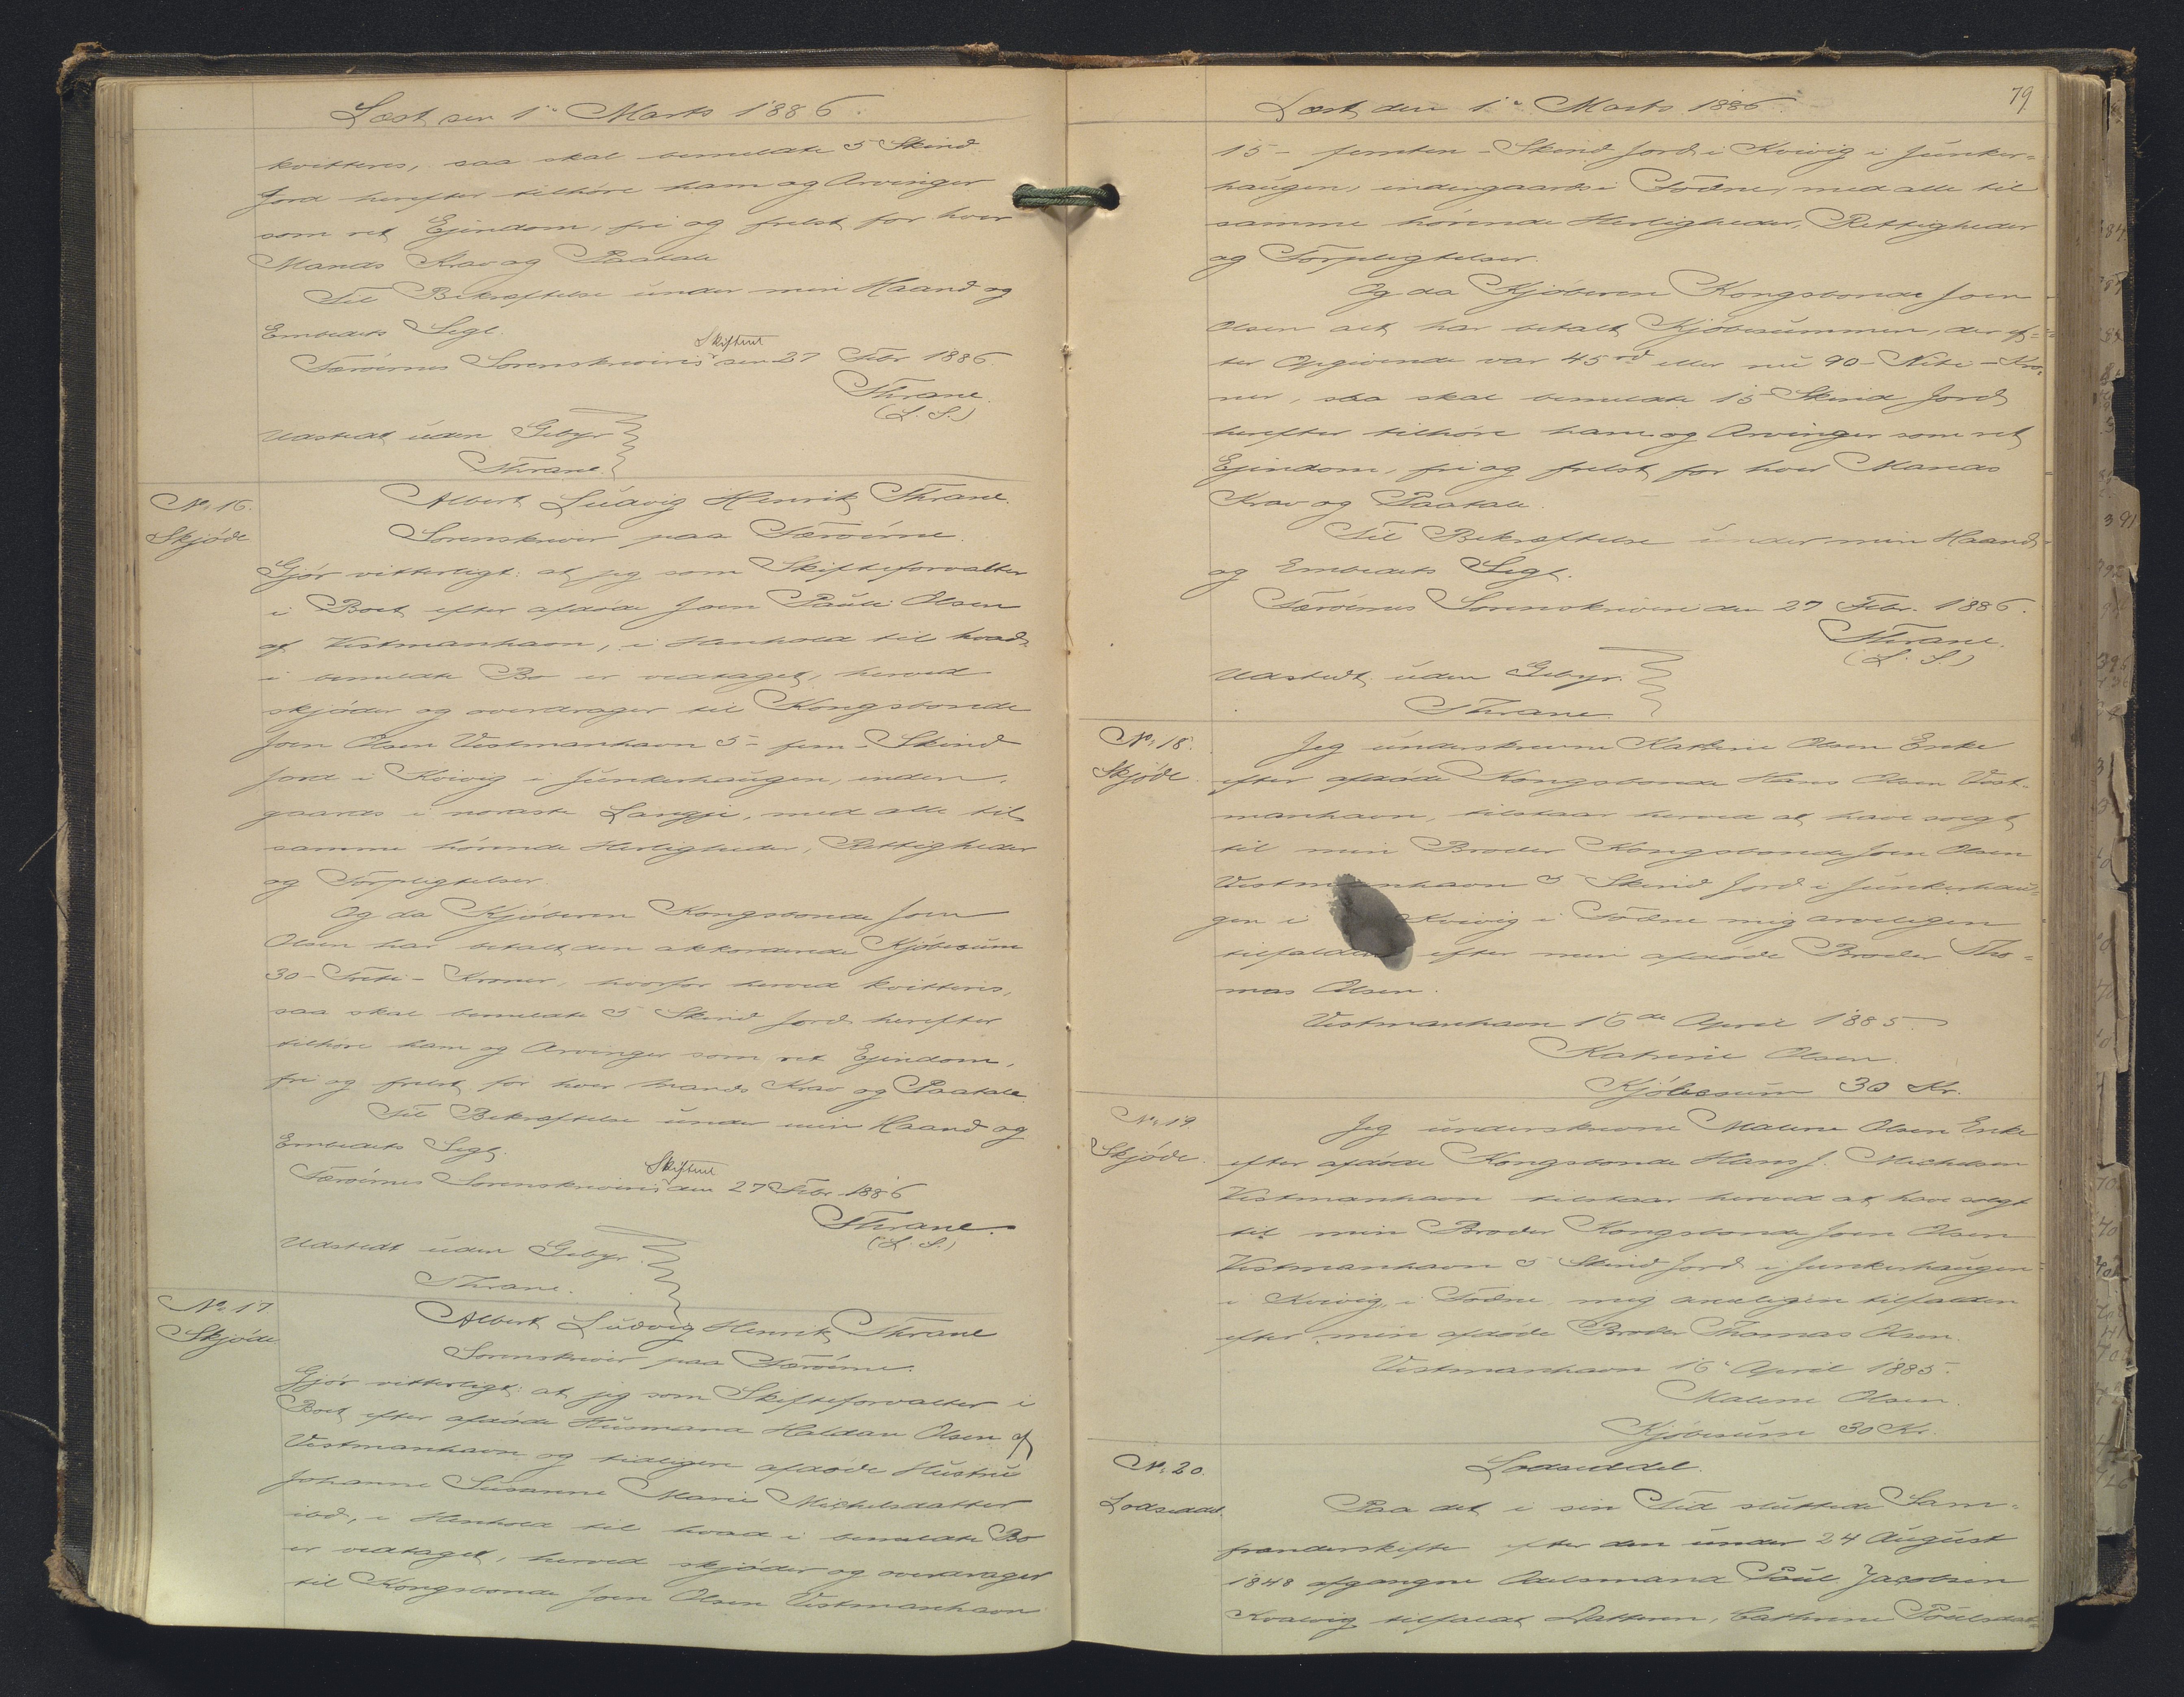 Læst den 1ᵉ Marts 1886.
kvitteres, saa skal bemeldte 5 Skind
Jord herefter tilhøre ham og Arvinger
som ret Ejendom, fri og frelst for hver
Mands Krav og Paatale
Til Bekræftelse under min Haand og
Embeds Segl.
Skifteret
Færøernes Sorenskriveri den 27 Febr 1886.
Thrane.
(L. S.)
Udstedt uden Gebyr
Thrane.
No. 16.
Skjøde
Albert Ludvig Henrik Thrane.
Sorenskriver paa Færøerne.
Gjør vitterligt: at jeg som Skifteforvalter
i Boet efter afdøde Joen Pauli Olsen
af Vestmanhavn, i Henhold til hvad
i bemeldte Bo er vedtaget, herved
skjøder og overdrager til Kongsbonde
Joen Olsen Vestmanhavn 5 - fem - Skind
Jord i Kvivig i Junkerhaugen, inden,
gaards i noraste Langje, med alle til
samme hørende Herligheder, Rettigheder
og Forpligtelser.
Og da Kjøberen Kongsbonde Joen
Olsen har betalt den akkorderede Kjøbesum
30 - Treti - Kroner, hvorfor herved kvitteres,
saa skal bemeldte 5 Skind Jord herefter
tilhøre ham og Arvinger som ret Ejendom,
fri og frelst for hver Mands Krav og Paatale.
Til Bekræftelse under min Haand og
Embedets Segl.
Skifteret
Færøernes Sorenskriveri den 27 Febr. 1886
Thrane.
(L. S.)
Udstedt uden Gebyr.
Thrane.
No. 17
Skjøde
Albert Ludvig Henrik Thrane
Sorenskriver paa Færøerne.
Gjør vitterligt: at jeg som Skifteforvalter i
Boet efter afdøde Husmand Haldan Olsen af
Vestmanhavn og tidligere afdøde Hustru
Johanne Susanne Marie Michelsdatter
ibd, i Henhold til hvad i bemeldte Bo
er vedtaget, herved skjøder og overdrager
til Kongsbonde Joen Olsen Vestmanhavn
79
Læst den 1ᵉ Marts 1886.
15 - femten - Skind Jord i Kvivig i Junker=
haugen, indengaards i Tødne, med alle til
samme hørende Herligheder, Rettigheder
og Forpligtelser.
Og da Kjøberen Kongsbonde Joen
Olsen alt har betalt Kjøbesummen, der ef=
ter Opgivende var 45 rd eller nu 90 - Niti - Kro,
ner, saa skal bemeldte 15 Skind Jord
herefter tilhøre ham og Arvinger som ret
Ejendom, fri og frelst for hver Mands
Krav og Paatale.
Til Bekræftelse under min Haand
og Embedets Segl.
Færøernes Sorenskriveri den 27 Febr. 1886.
Thrane.
(L. S.)
Udstedt uden Gebyr.
Thrane.
No. 18.
Skjøde.
Jeg underskrevne Katrine Olsen Enke
efter afdøde Kongsbonde Hans Olsen Vest-
manhavn, tilstaar herved at have solgt
til min Broder Kongsbonde Joen Olsen
Vestmanhavn 5 Skind Jord i Junkerhau=
gen i Kvivig i Tødne mig arveligen
tilfalden efter min afdøde Broder Tho=
mas Olsen.
Vestmanhavn 16de April 1885
Katrine Olsen.
Kjøbesum 30 Kr.
No. 19.
Skjøde.
Jeg underskrevne Malene Olsen Enke
efter afdøde Kongsbonde Hans J. Michelsen
Vestmanhavn tilstaar herved at have solgt
til min Broder Kongsbonde Joen Olsen
Vestmanhavn 5 Skind Jord i Junkerhaugen
i Kvivig, i Tødne, mig arveligen tilfalden
efter min afdøde Broder Thomas Olsen.
Vestmanhavn 16ᵉ April 1885.
Malene Olsen.
Kjøbesum 30 Kr.
No. 20.
Lodseddel.
Lodseddel.
Paa det i sin Tid sluttede Sam=
frænderskifte efter den under 24 August
1848 afgangne Odelsmand Poul Jacobsen
Kvalvig tilfaldt Datteren, Cathrine Poulsdat